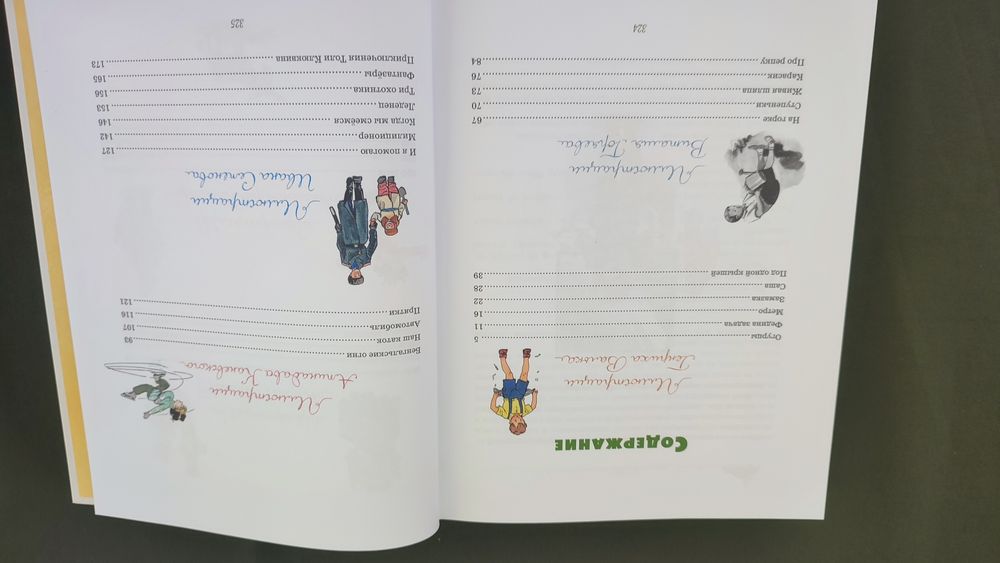 Содержание
Иллюстрации
Генриха Валька
Огурцы 5
Федина задача 11
Метро 16
Замазка 22
Саша 28
Под одной крышей 39
Иллюстрации
Виталия Горяева
На горке 67
Ступеньки 70
Живая шляпа 73
Карасик 76
Про репку 84
324
Иллюстрации
Аминадава Каневского
Бенгальские огни 93
Наш каток 107
Автомобиль 116
Прятки 121
Иллюстрации
Ивана Семёнова
И я помогаю 127
Милиционер 142
Когда мы смеёмся 146
Леденец 153
Три охотника 156
Фантазёры 165
Приключения Толи Клюквина 173
325